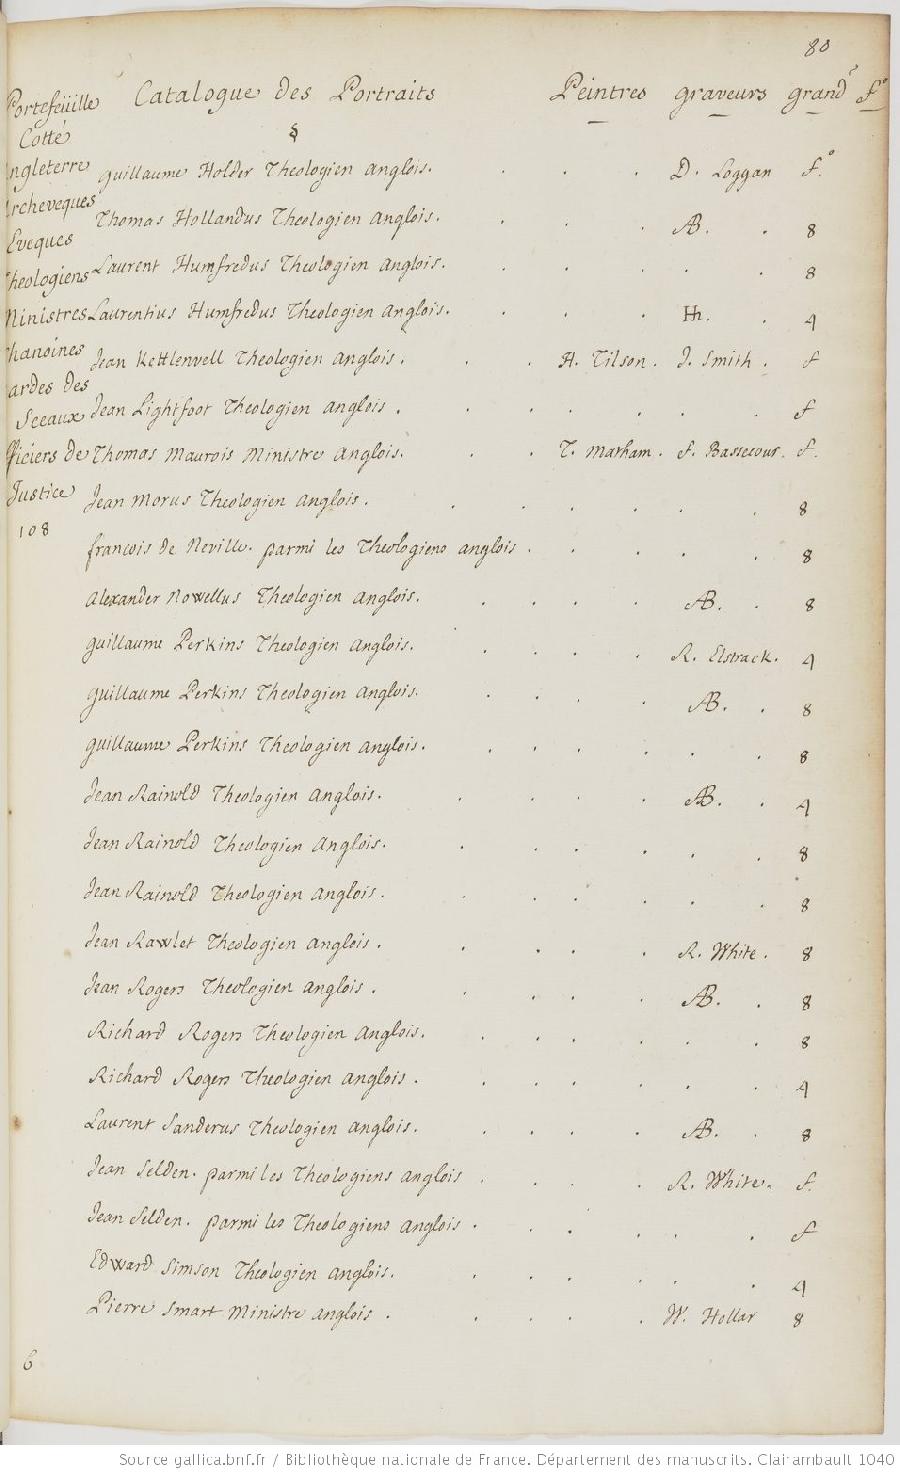 80
Portefeüille Catalogue des Portraits Peintres graveurs grand.r f.o
Cotté §
Angleterre Guillaume Holder Theologien anglois. D. Loggan f.o
Archeveques Thomas Hollandus Theologien anglois. AB. 8
Eveques
Theologiens Laurent Humfredus Theologien anglois. 8
Ministres Laurentius Humfredus Theologien anglois. Hh. 4
Chanoines Jean Kettlenvell Theologien anglois. H. Tilson. J. Smith. f
Gardes des
Sceaux Jean Lightfoot Theologien anglois. f
Officiers de Thomas Maurois Ministre anglois. T. Marham. f. Bassecour. f.
Justice Jean Morus Theologien anglois. 8
108
françois de Neville. parmi les Theologiens anglois. 8
Alexander Nowellus Theologien anglois. AB. 8
guillaume Perkins Theologien anglois. R. Elstrack. 4
guillaume Perkins Theologien anglois. AB. 8
guillaume Perkins Theologien anglois. 8
Jean Rainold Theologien anglois. AB. 4
Jean Rainold Theologien anglois. 8
Jean Rainold Theologien anglois. 8
Jean Rawlet Theologien anglois. R. White. 8
Jean Rogers Theologien anglois. AB. 8
Richard Rogers Theologien anglois. 8
Richard Rogers Theologien anglois. 4
Laurent Sanderus Theologien anglois. AB. 8
Jean Selden. parmi les Theologiens anglois. R. White. f.
Jean Selden. parmi les Theologiens anglois. f
Edward Simson Theologien anglois. 4
Pierre Smart Ministre anglois. W. Hollar 8
6
Source gallica.bnf.fr / Bibliothèque nationale de France. Département des manuscrits. Clairambault 1040